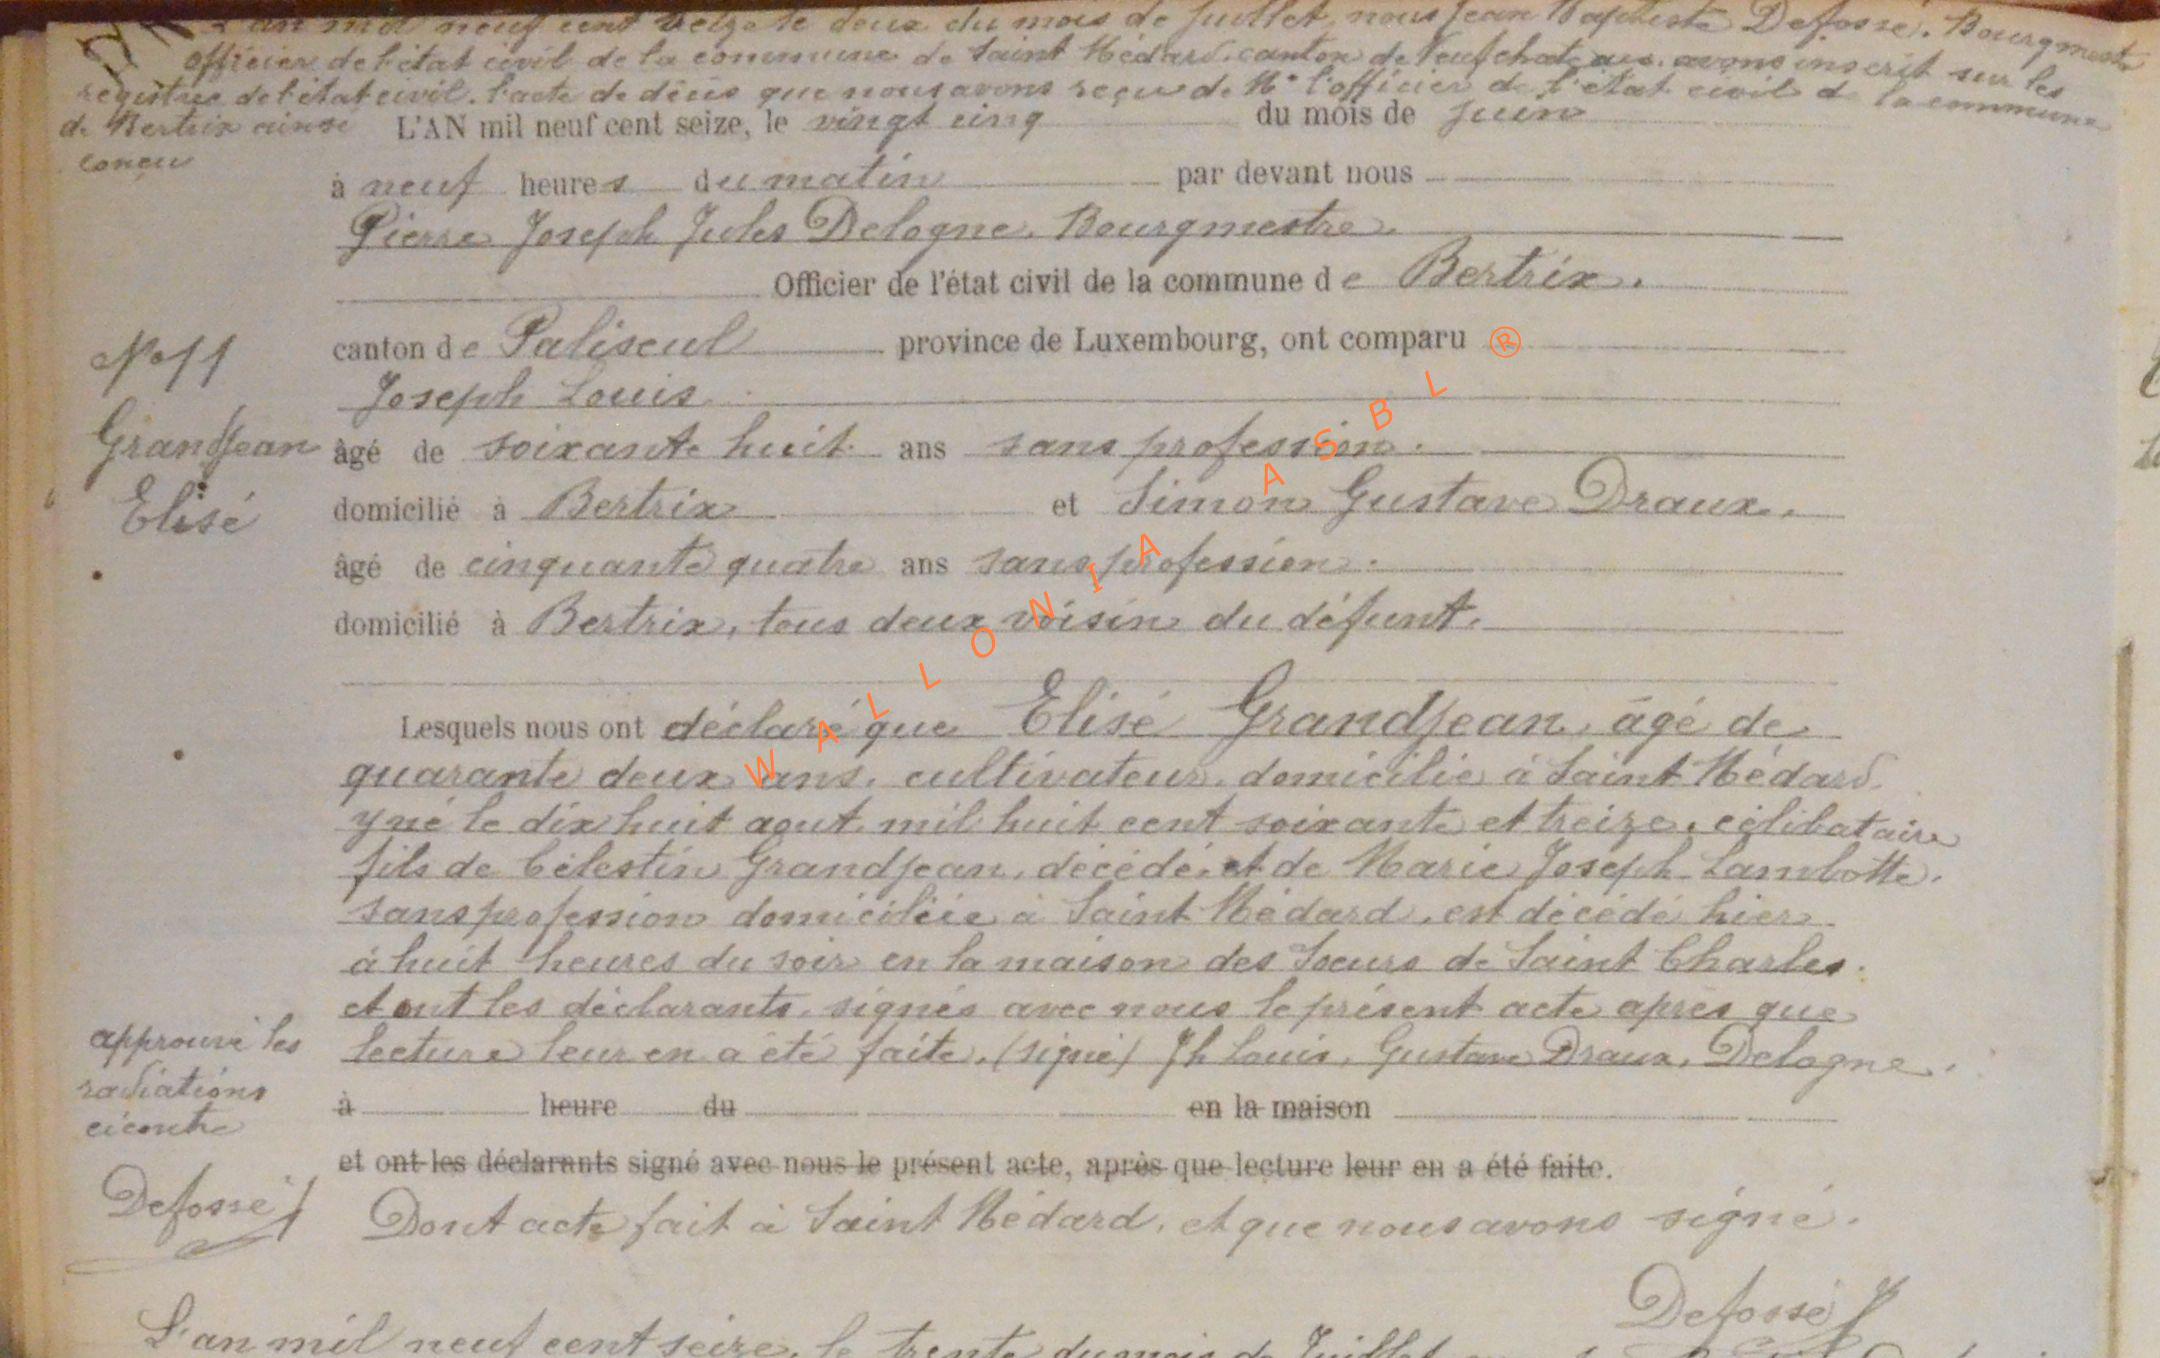 L'an mil neuf cent seize le deux du mois de Juillet, nous Jean Baptiste Defossé, Bourgmestre
officier de l'état civil de la commune de Saint Médard, canton de Neufchateau, avons inscrit sur les
registres de l'état civil, l'acte de décès que nous avons reçu de Mr l'officier de l'état civil de la commune
de Bertrix ainsi
conçu
L'AN mil neuf cent seize, le vingt cinq du mois de Juin
à neuf heures du matin par devant nous
Pierre Joseph Jules Delogne, Bourgmestre.
Officier de l'état civil de la commune de Bertrix.
canton de Paliseul province de Luxembourg, ont comparu
Joseph Louis
âgé de soixante huit ans sans profession.
domicilié à Bertrix et Simon Gustave Draux.
âgé de cinquante quatre ans sans profession.
domicilié à Bertrix, tous deux voisin du défunt.
No 11
GrandJean
Elisé
Lesquels nous ont déclaré que Elisé GrandJean, âgé de
quarante deux ans, cultivateur, domicilié à Saint Médard
y né le dix huit aout mil huit cent soixante et treize, célibataire
fils de Célestin GrandJean, décédé, et de Marie Joseph Lambotte.
sans profession domiciliée à Saint Médard, est décédé hier
à huit heures du soir en la maison des Sœurs de Saint Charles.
et ont les déclarants, signés avec nous le présent acte après que
lecture leur en a été faite, (signé) Jh Louis, Gustave Draux, Delogne.
à heure du en la maison
et ont les déclarants signé avec nous le présent acte, après que lecture leur en a été faite.
approuvé les
radiations
cicontre
Defossé J
Dont acte fait à Saint Médard, et que nous avons signé.
Defossé J
L'an mil neuf cent seize, le trente du mois de Juillet
WALLONIA ASBL ®